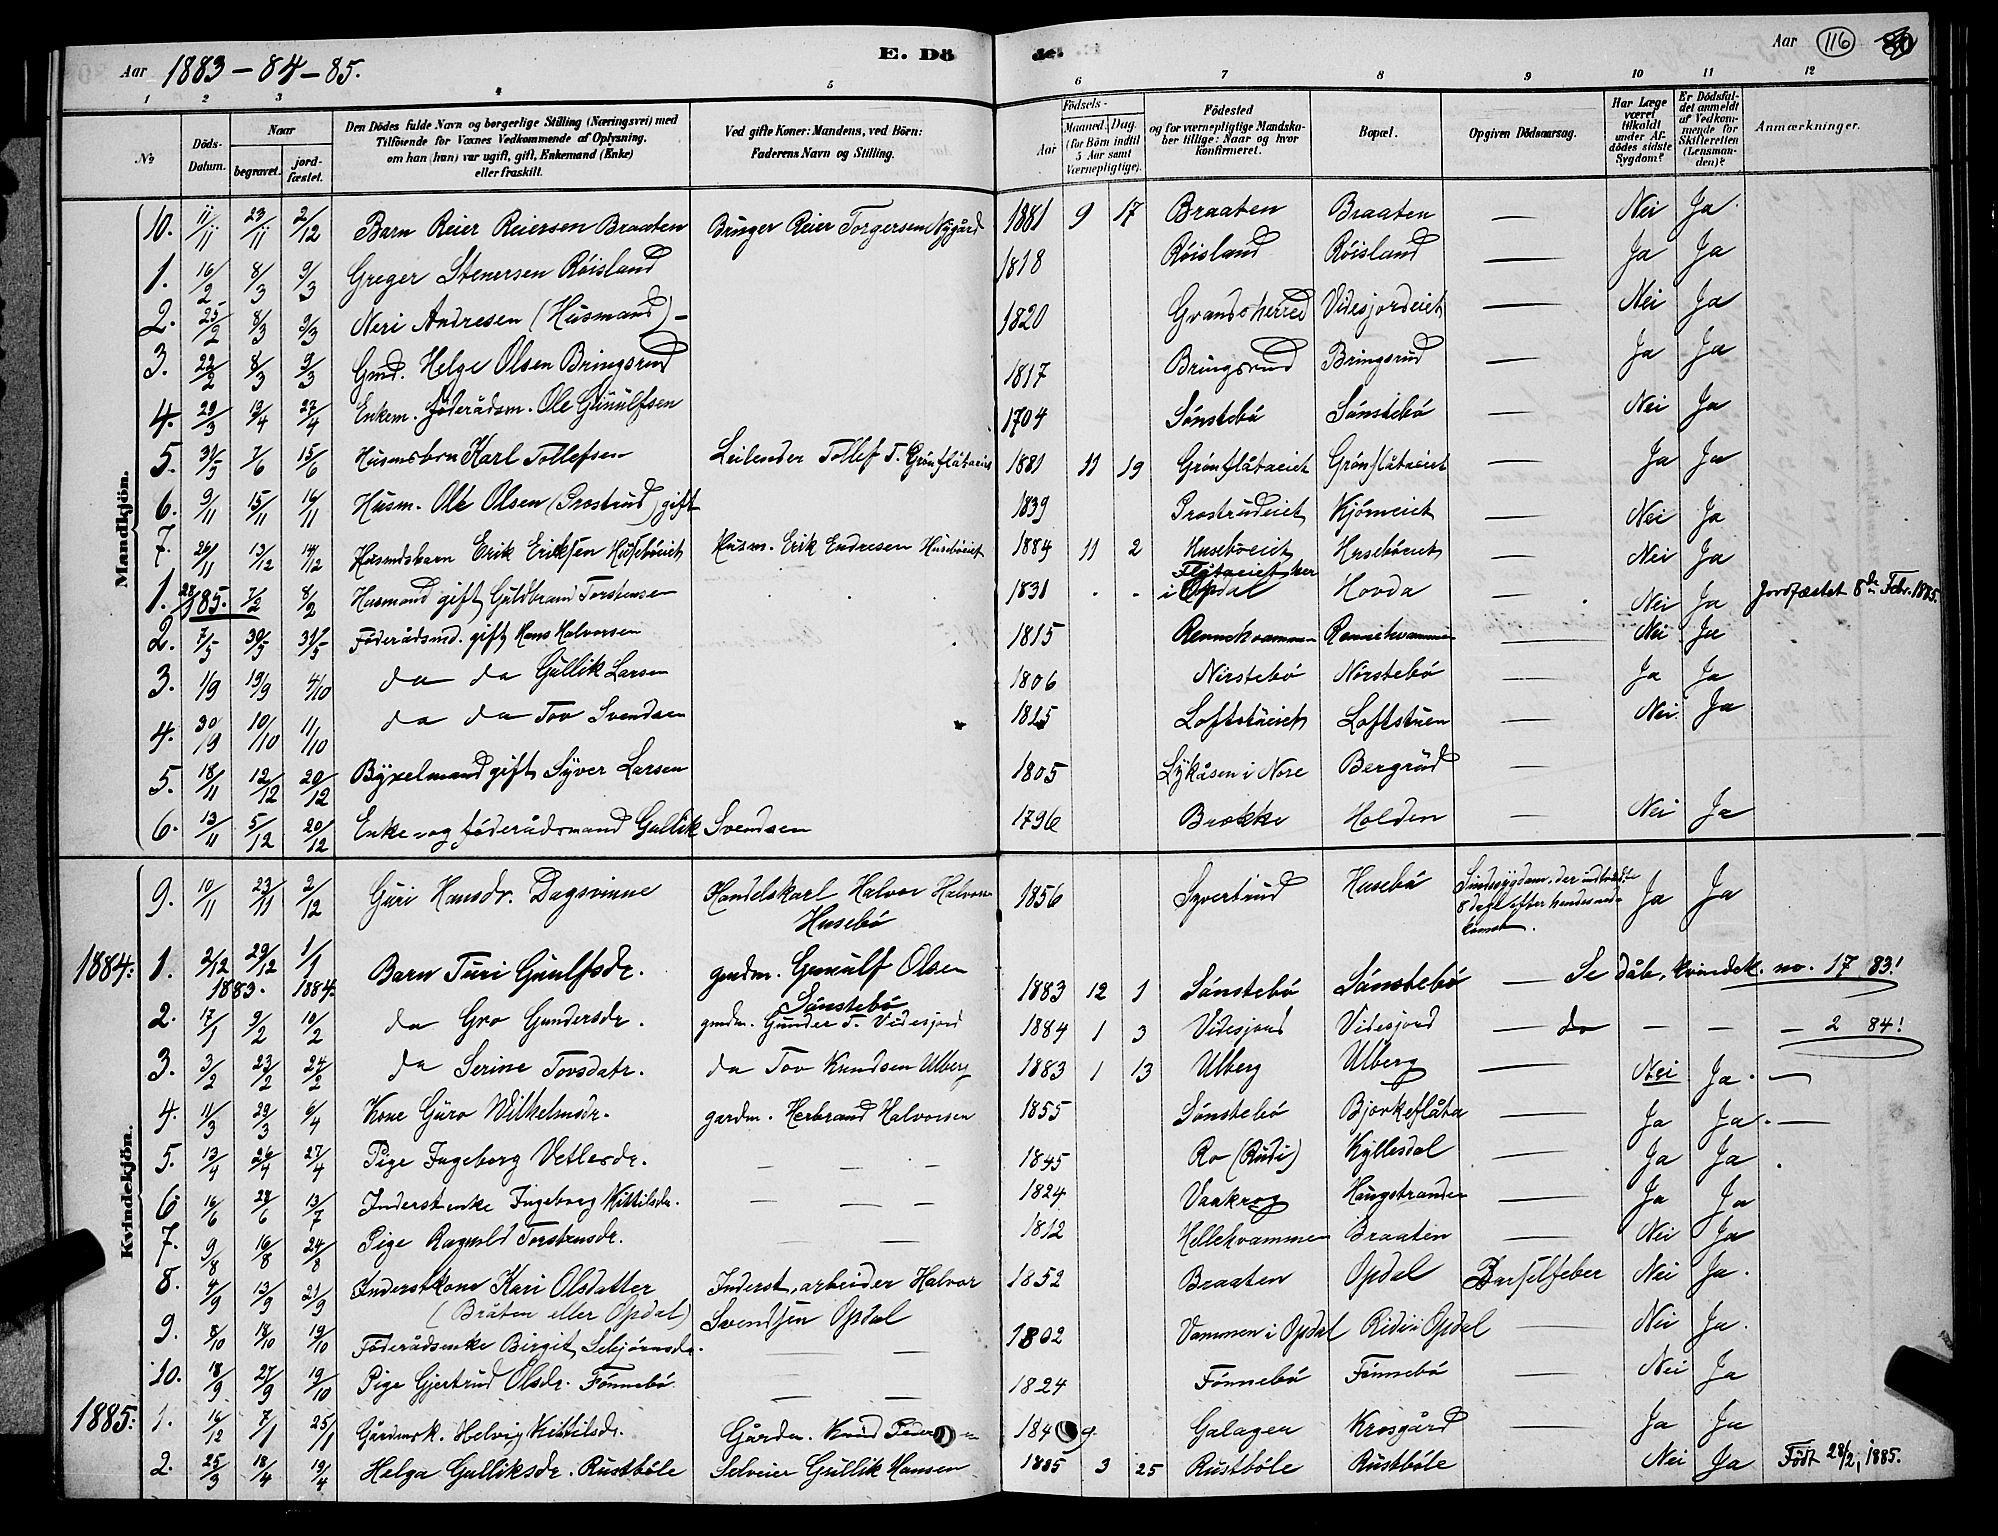 Aar 1883-84-85. E. Dö de. Aar 116
1 2 3 4 5 6 7 8 9 10 11 12
No
Döds-Datum.
Naar
begravet.
jordfæstet.
Den Dödes fulde Navn og borgerlige Stilling (Næringsvei) med
Tilföiende for Voxnes Vedkommende af Oplysning,
om han (hun) var ugift, gift, Enkemand (Enke)
eller fraskilt.
Ved gifte Koner: Mandens, ved Börn:
Faderens Navn og Stilling.
Födsels-
Aar
Maaned. Dag.
(for Börn indtil
5 Aar samt
Værnepligtige).
Födested
og for værnepligtige Mandskaber tillige: Naar og hvor
konfirmeret.
Bopæl.
Opgiven Dödsaarsag.
Har Læge
været
tilkaldt
under Afdödes sidste
Sygdom?
Er Dödsfaldet anmeldt
af Vedkommende for
Skifteretten
(Lensmanden)?
Anmærkninger.
Mandkjön.
10. 11/11 23/11 2/12 Barn Reier Reiersen Braaten Bruger Reier Torgersen Nygård 1881 9 17 Braaten Braaten — Nei Ja.
1. 16/2 8/3 9/3 Greger Stenersen Röisland 1818 Röisland Röisland — Ja Ja
2. 25/2 8/3 9/3 Neri Andresen (Husmand) - 1820 Grandsherred Videsjordeiet — Nei Ja
3. 22/2 8/3 9/3 Gmd. Helge Olsen Bringsrud 1817 Bringsrud Bringsrud — Ja Ja
4. 29/3 19/4 27/4 Enkem. föderådsm. Ole Gunulfsen 1704 Sönstebö Sönstebö — Nei Ja
5. 31/5 7/6 15/6 Husmsbrn Karl Tollefsen Leilender Tollef T. Grönflåtaeiet 1881 11 19 Grönflåtaeiet Grönflåtaeiet — Ja Ja
6. 9/11 15/11 16/11 Husm. Ole Olsen (Prostrud) gift 1839 Prostrudeiet Kjömeiet — Nei Ja
7. 26/11 13/12 14/12 Husmdsbarn Erik Eriksen Huseböeiet Husm. Erik Endresen Huseböeiet 1884 11 2 Huseböeiet Huseböeiet — Nei Ja
1. 28/1 85. 7/2 8/2 Husmand gift Guldbrand Torstensen 1831 Flåtaeiet her i Opdal Hovda — Nei Ja Jordfæstet 8de Febr. 1885.
2. 7/5 30/5 31/5 Föderådsmd. gift Hans Halvorsen 1815 Rennehvammen Rennehvammen — Nei Ja
3. 1/9 19/9 4/10 da da Gullik Larsen 1806 Nörstebö Nörstebö — Ja Ja
4. 30/9 10/10 11/10 da da Tov Svendsen 1825 Loftstueiet Loftstuen — Nei Ja
5. 18/11 12/12 20/12 Byxelmand gift Syver Larsen 1805 Lykåsen i Nore Bergrud —
6. 13/11 5/12 20/12 Enke- og föderådsmand Gullik Svendsen 1796 Brokke Holden — Nei Ja
Kvindekjön.
9. 10/11 23/11 2/12 Guri Hansdr. Dagsvinne Handelskarl Halvor Halvorsen 1856 Syvertrud Husebö Sindssygdom, der indtraadte Ja Ja
Husebö 8 dage efter hendes nedkomst.
1884: 1. 2/12 29/12 1/1 Barn Turi Gunulfsdr. gmdm. Gunulf Olsen 1883 12 1 Sönstebö Sönstebö — Se dåb, kvindek. no. 17 83!
1883. 1884. Sönstebö
2. 17/1 9/2 10/2 da Gro Gundersdr. gmdm. Gunder T. Videsjord 1884 1 3 Videsjord Videsjord — do — — — 2 84!
3. 3/2 23/2 24/2 da Serine Tovsdatr. da Tov Knudsen Ulberg 1883 1 13 Ulberg Ulberg — Nei Ja. —
4. 11/3 29/3 6/4 Kone Guro Wilhelmsdr. gardm. Herbrand Halvorsen 1855 Sönstebö Bjørkeflåta — Ja Ja. —
5. 13/4 26/4 27/4 Pige Ingeborg Vetlesdr. — — — 1845 Ro (Rudi) Kyllesdal — Ja Ja.
6 16/6 28/6 13/7 Inderstenke Ingeborg Kittilsdr. — — — 1824 Vaakrog Haugstranden — Ja Ja
7. 9/8 16/8 24/8 Pige Ragnild Torstensdr. — — 1812 Hellehvammen Braaten — Nei Ja
8. 4/9 13/9 21/9 Inderstkone Kari Olsdatter Inderst, arbeider Halvor 1852 Braaten Opdal Barselfeber Nei Ja.
(Bråten eller Opdal) Svendsen Opdal
9. 8/10 18/10 19/10 Föderådsenke Birgit Sebjörnsdr. — — 1802 Vammen i Opdal Rudi i Opdal Nei Ja.
10. 18/9 27/9 19/10 Pige Gjertrud Olsdr. Fönnebö — — 1824 Fönnebö Fönnebö — Nei Ja
1885: 1. 16/12 7/1 25/1 Gårdmsk. Helvig Kittilsdr. Gårdm. Knud 184 9. Galagen Krosgård — Ja Ja
2. 25/3 18/4 19/4 Helga Gulliksdr. Rustböle Selveier Gullik Hansen 1885 3 25 Rustböle Rustböle — Nei Ja Född 28/2, 1885.